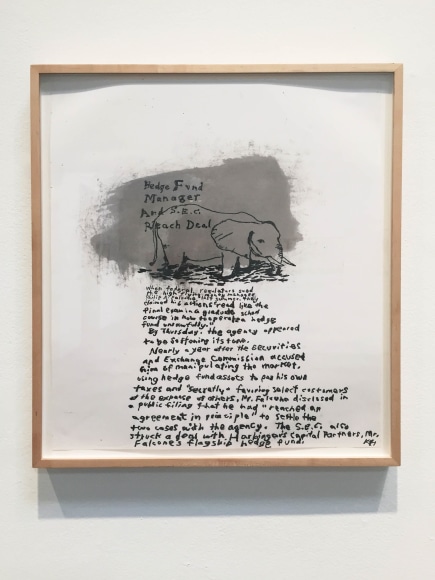 Hedge Fund
Manager
And S.E.C.
Reach Deal
When federal regulators sued
the high-flying money manager
Philip A. Falcone last summer, they
claimed his actions "read like the
final exam in a graduate school
course in how to operate a hedge
fund unlawfully."
By Thursday, the agency appeared
to be softening its tone.
Nearly a year after the Securities
and Exchange Commission accused
him of manipulating the market,
using hedge fund assets to pay his own
taxes and "secretly" favoring select customers
at the expense of others, Mr. Falcone disclosed in
a public filing that he had "reached an
agreement in principle" to settle the
two cases with the agency. The S.E.C. also
struck a deal with Harbinger Capital Partners, Mr.
Falcone's flagship hedge fund.